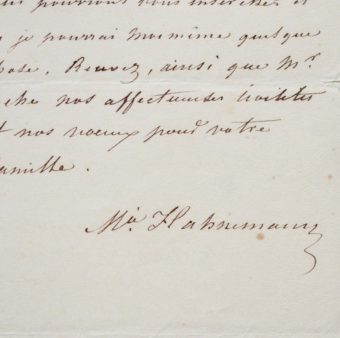 pourront vous intéresser et
je pourrai moi même quelque
Recevez, ainsi que Mr.
nos affectueuses
nos voeux pour votre
famille.
Mie Hahnemann